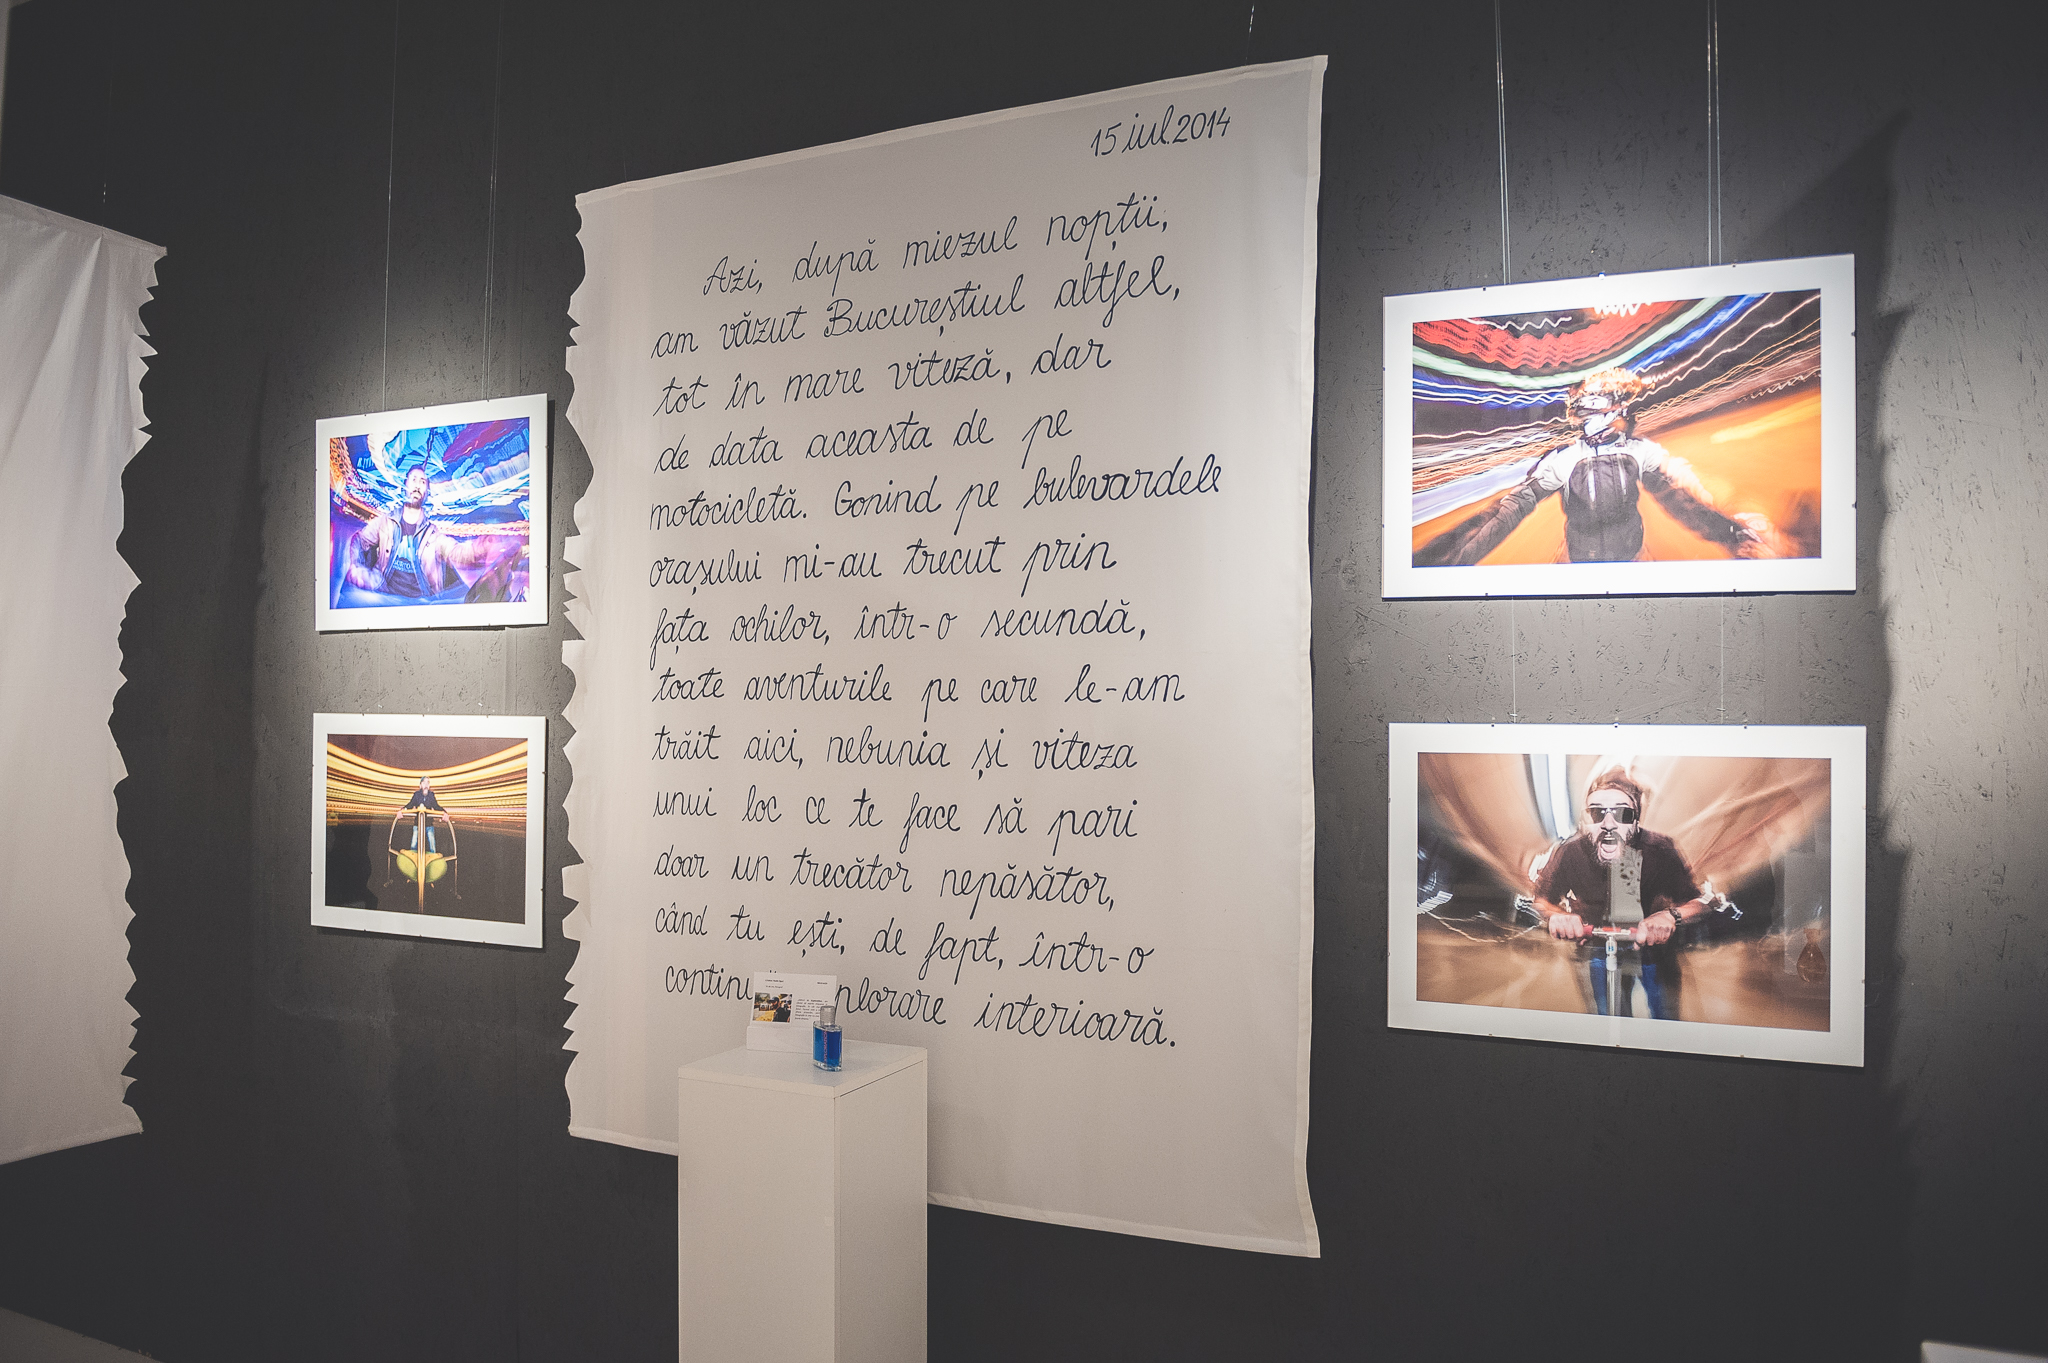 15 iul. 2014
Azi, după miezul nopții,
am văzut Bucureștiul altfel,
tot în mare viteză, dar
de data aceasta de pe
motocicletă. Gonind pe bulevardele
orașului mi-au trecut prin
fața ochilor, într-o secundă,
toate aventurile pe care le-am
trăit aici, nebunia și viteza
unui loc ce te face să pari
doar un trecător nepăsător,
când tu ești, de fapt, într-o
interioară.